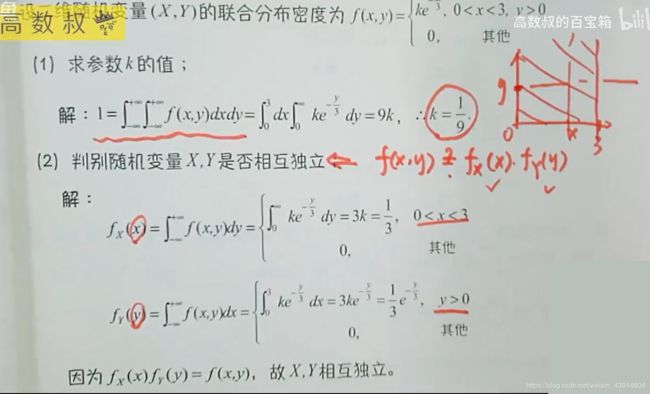 高数叔
设二维随机变量(X,Y)的联合分布密度为 f(x,y)={ke^{-y/3}, 0<x<3, y>0
0, 其他
高数叔的百宝箱 bilibili
(1) 求参数k的值；
解：1=∫_{-∞}^{+∞}∫_{-∞}^{+∞} f(x,y)dxdy=∫_0^3 dx∫_0^∞ ke^{-y/3} dy=9k, ∴k=1/9.
y
0 x 3
(2) 判别随机变量X,Y是否相互独立 ⇐ f(x,y) ?= f_X(x)·f_Y(y)
解：
f_X(x)=∫_{-∞}^{+∞} f(x,y)dy={∫_0^∞ ke^{-y/3} dy=3k=1/3, 0<x<3
0, 其他
f_Y(y)=∫_{-∞}^{+∞} f(x,y)dx={∫_0^3 ke^{-y/3} dx=3ke^{-y/3}=1/3 e^{-y/3}, y>0
0, 其他
因为f_X(x)f_Y(y)=f(x,y)，故X,Y相互独立。